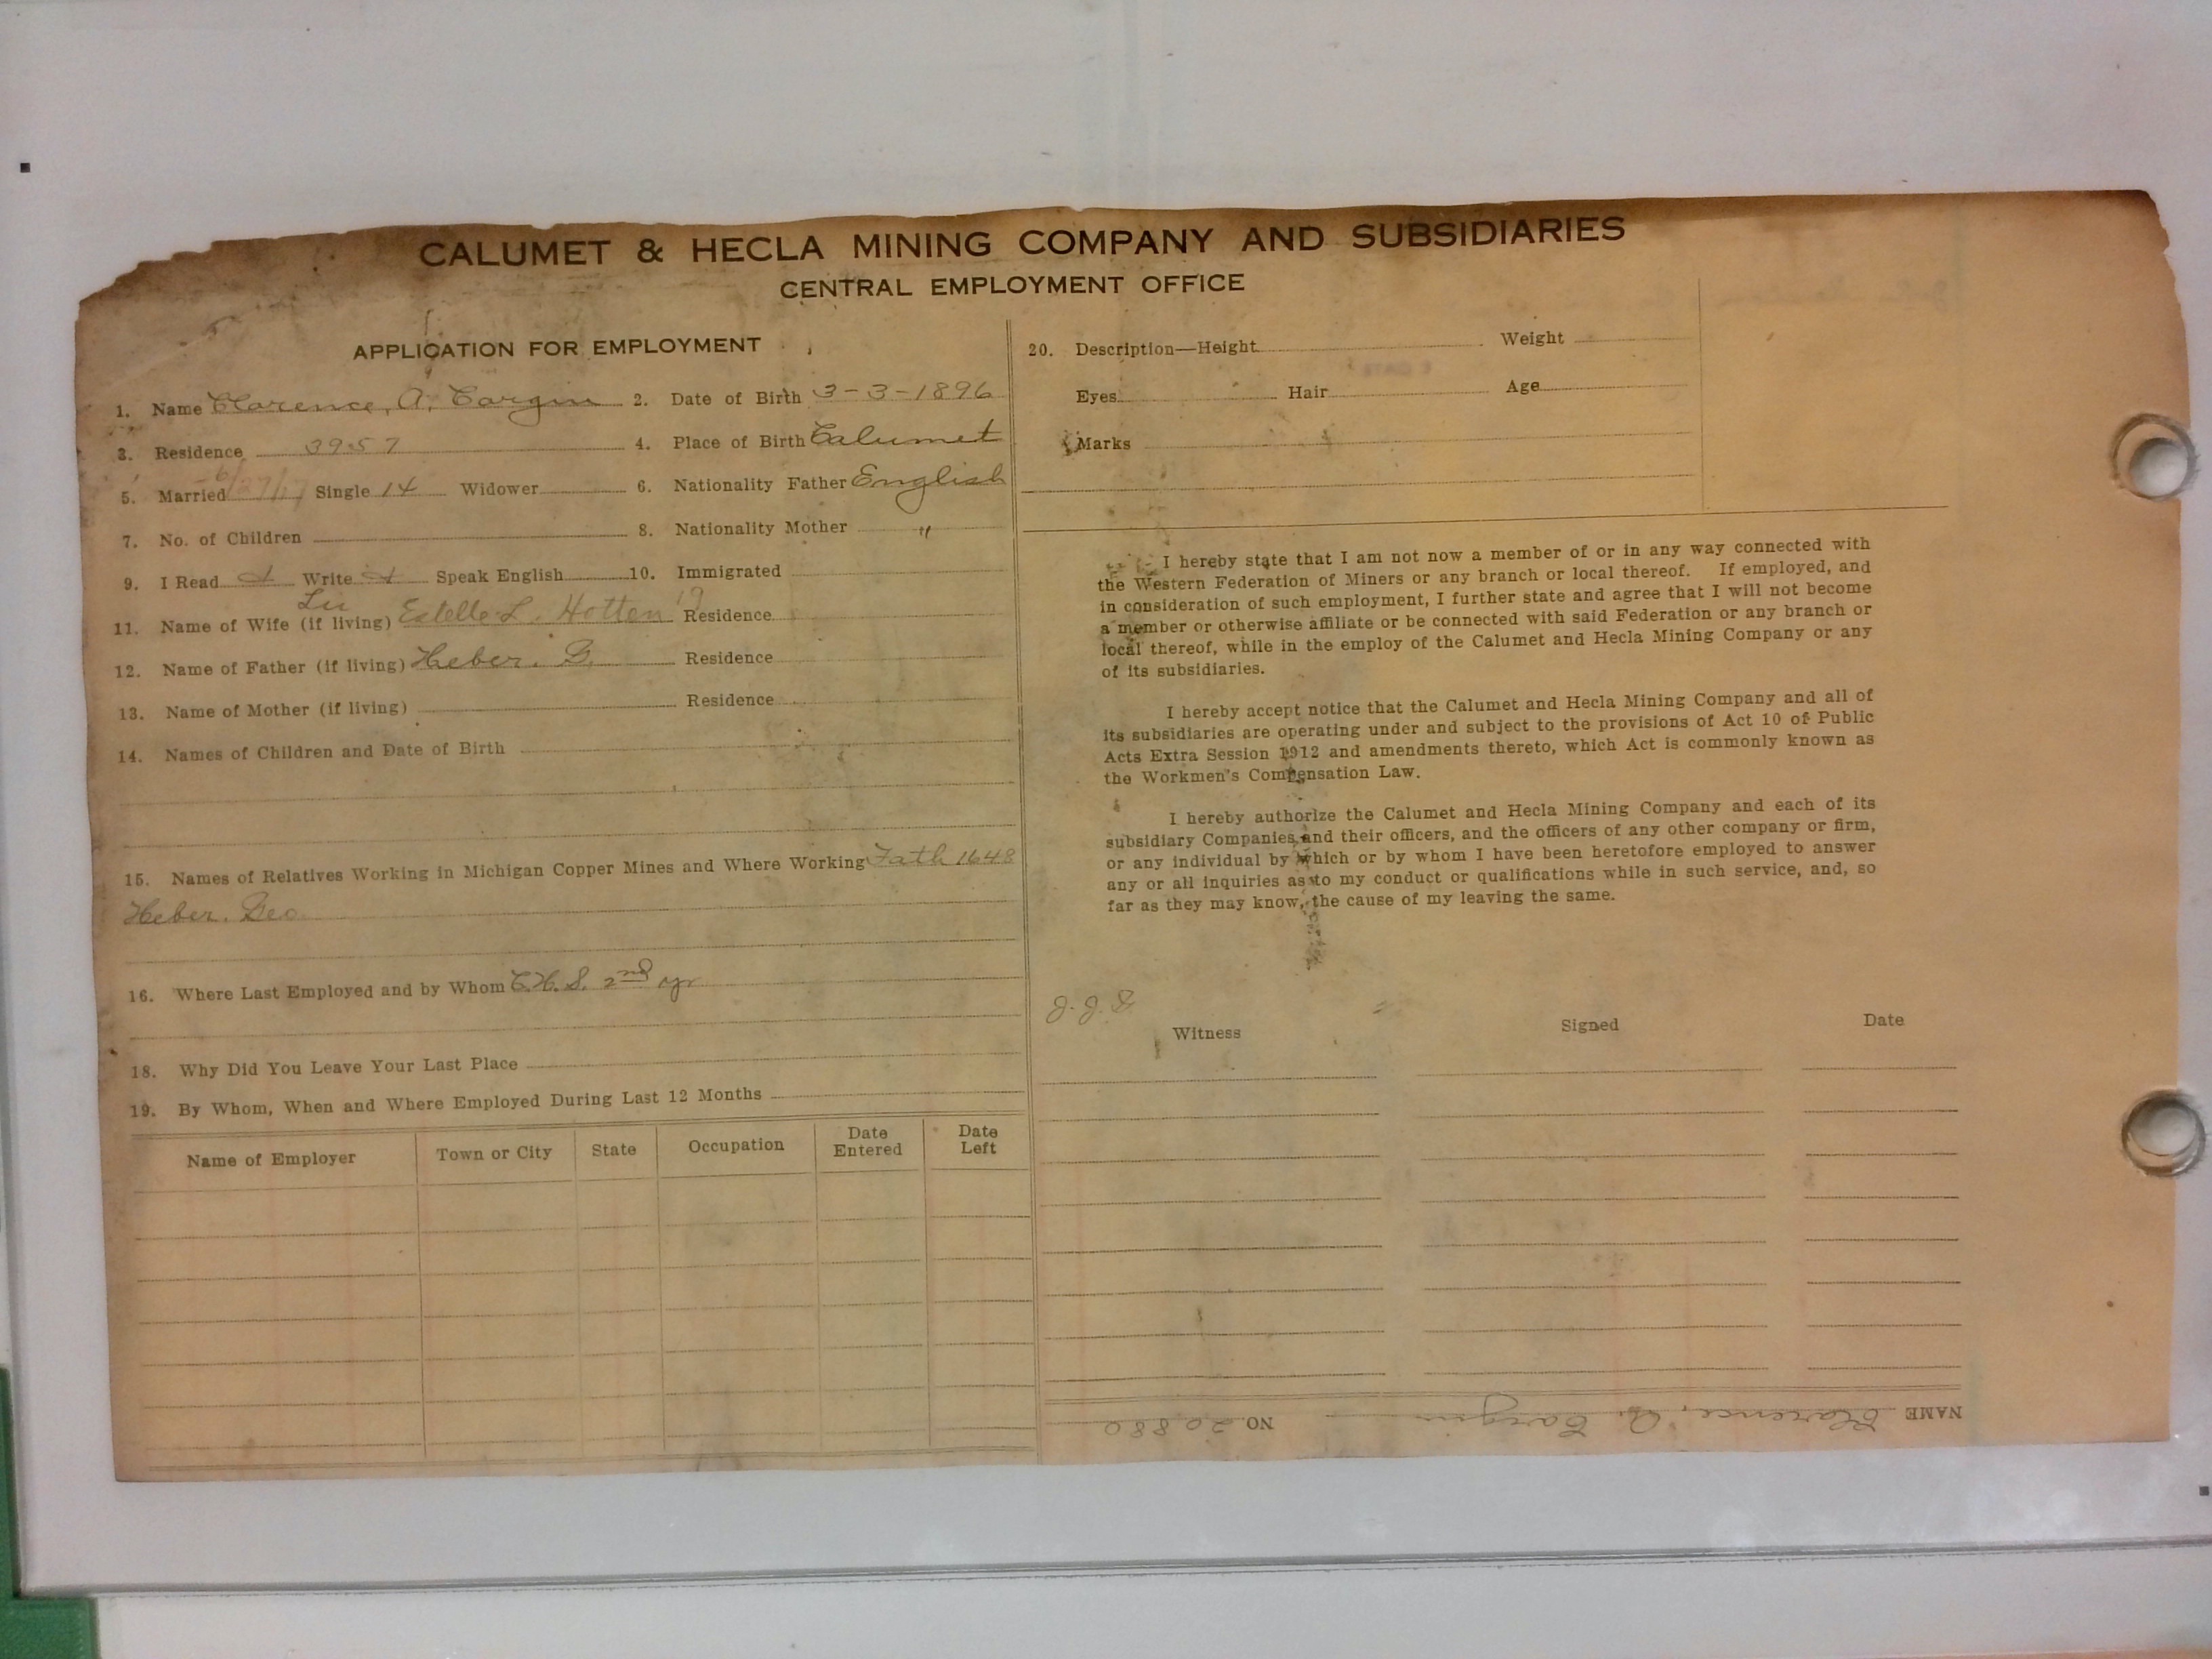 CALUMET & HECLA MINING COMPANY AND SUBSIDIARIES
CENTRAL EMPLOYMENT OFFICE
APPLICATION FOR EMPLOYMENT
1. Name Clarence, A. Cargin 2. Date of Birth 3-3-1896
3. Residence 3957 4. Place of Birth Calumet
5. Married 6/27/17 Single 14 Widower 6. Nationality Father English
7. No. of Children 8. Nationality Mother "
9. I Read Write Speak English 10. Immigrated
11. Name of Wife (if living) Estelle L. Hotten Residence
12. Name of Father (if living) Heber. G. Residence
13. Name of Mother (if living) Residence
14. Names of Children and Date of Birth
15. Names of Relatives Working in Michigan Copper Mines and Where Working Fath 1648
Heber. Geo.
16. Where Last Employed and by Whom C.H.S. 2nd yr
18. Why Did You Leave Your Last Place
19. By Whom, When and Where Employed During Last 12 Months
Name of Employer Town or City State Occupation Date Entered Date Left
20. Description—Height Weight
Eyes Hair Age
Marks
I hereby state that I am not now a member of or in any way connected with
the Western Federation of Miners or any branch or local thereof. If employed, and
in consideration of such employment, I further state and agree that I will not become
a member or otherwise affiliate or be connected with said Federation or any branch or
local thereof, while in the employ of the Calumet and Hecla Mining Company or any
of its subsidiaries.
I hereby accept notice that the Calumet and Hecla Mining Company and all of
its subsidiaries are operating under and subject to the provisions of Act 10 of Public
Acts Extra Session 1912 and amendments thereto, which Act is commonly known as
the Workmen's Compensation Law.
I hereby authorize the Calumet and Hecla Mining Company and each of its
subsidiary Companies and their officers, and the officers of any other company or firm,
or any individual by which or by whom I have been heretofore employed to answer
any or all inquiries as to my conduct or qualifications while in such service, and, so
far as they may know, the cause of my leaving the same.
Witness Signed Date
NAME Clarence, A. Cargin NO. 20880